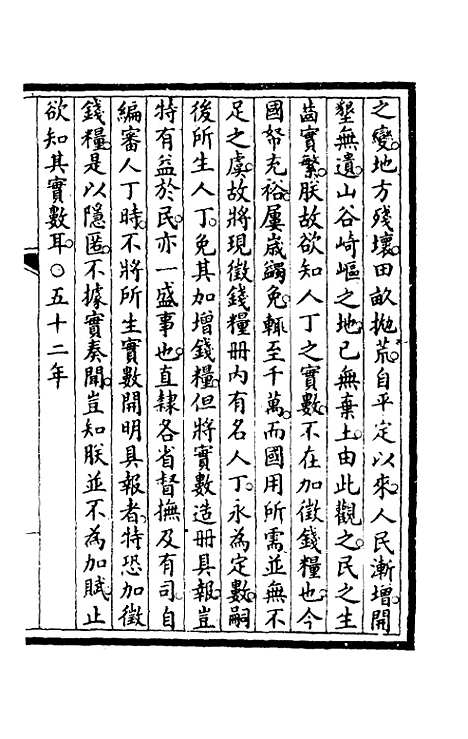 之變。地方殘壞。田畝拋荒。自平定以來。人民漸增。開
墾無遺。山谷崎嶇之地。已無棄土。由此觀之。民之生
齒實繁。朕故欲知人丁之實數。不在加徵錢糧也。今
國帑充裕。屢歲蠲免。輒至千萬。而國用所需。並無不
足之虞。故將現徵錢糧冊內有名人丁。永為定數。嗣
後所生人丁。免其加增錢糧。但將實數造冊具報。豈
特有益於民。亦一盛事也。直隸各省督撫及有司。自
編審人丁時。不將所生實數開明具報者。特恐加徵
錢糧。是以隱匿。不據實奏聞。豈知朕並不為加賦。止
欲知其實數耳。○五十二年